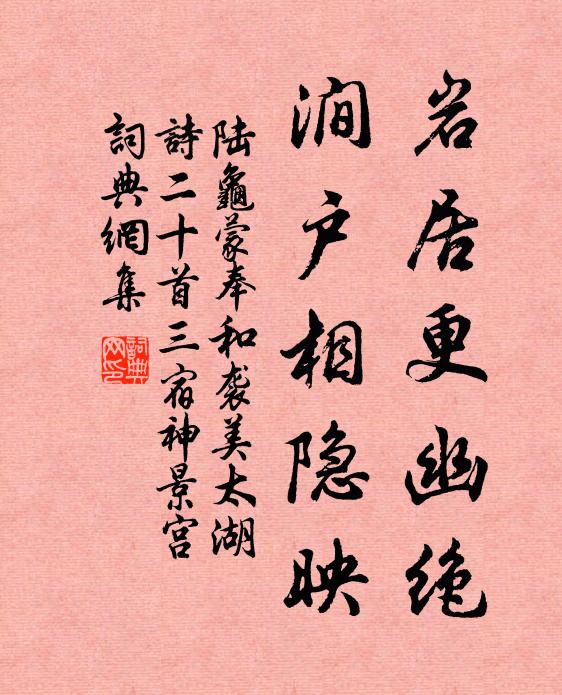 岩居更幽绝
澗户相隐映
陆龜蒙奉和袭美太湖
詩二十首三宿神景宫
詞典網集
詞典网印